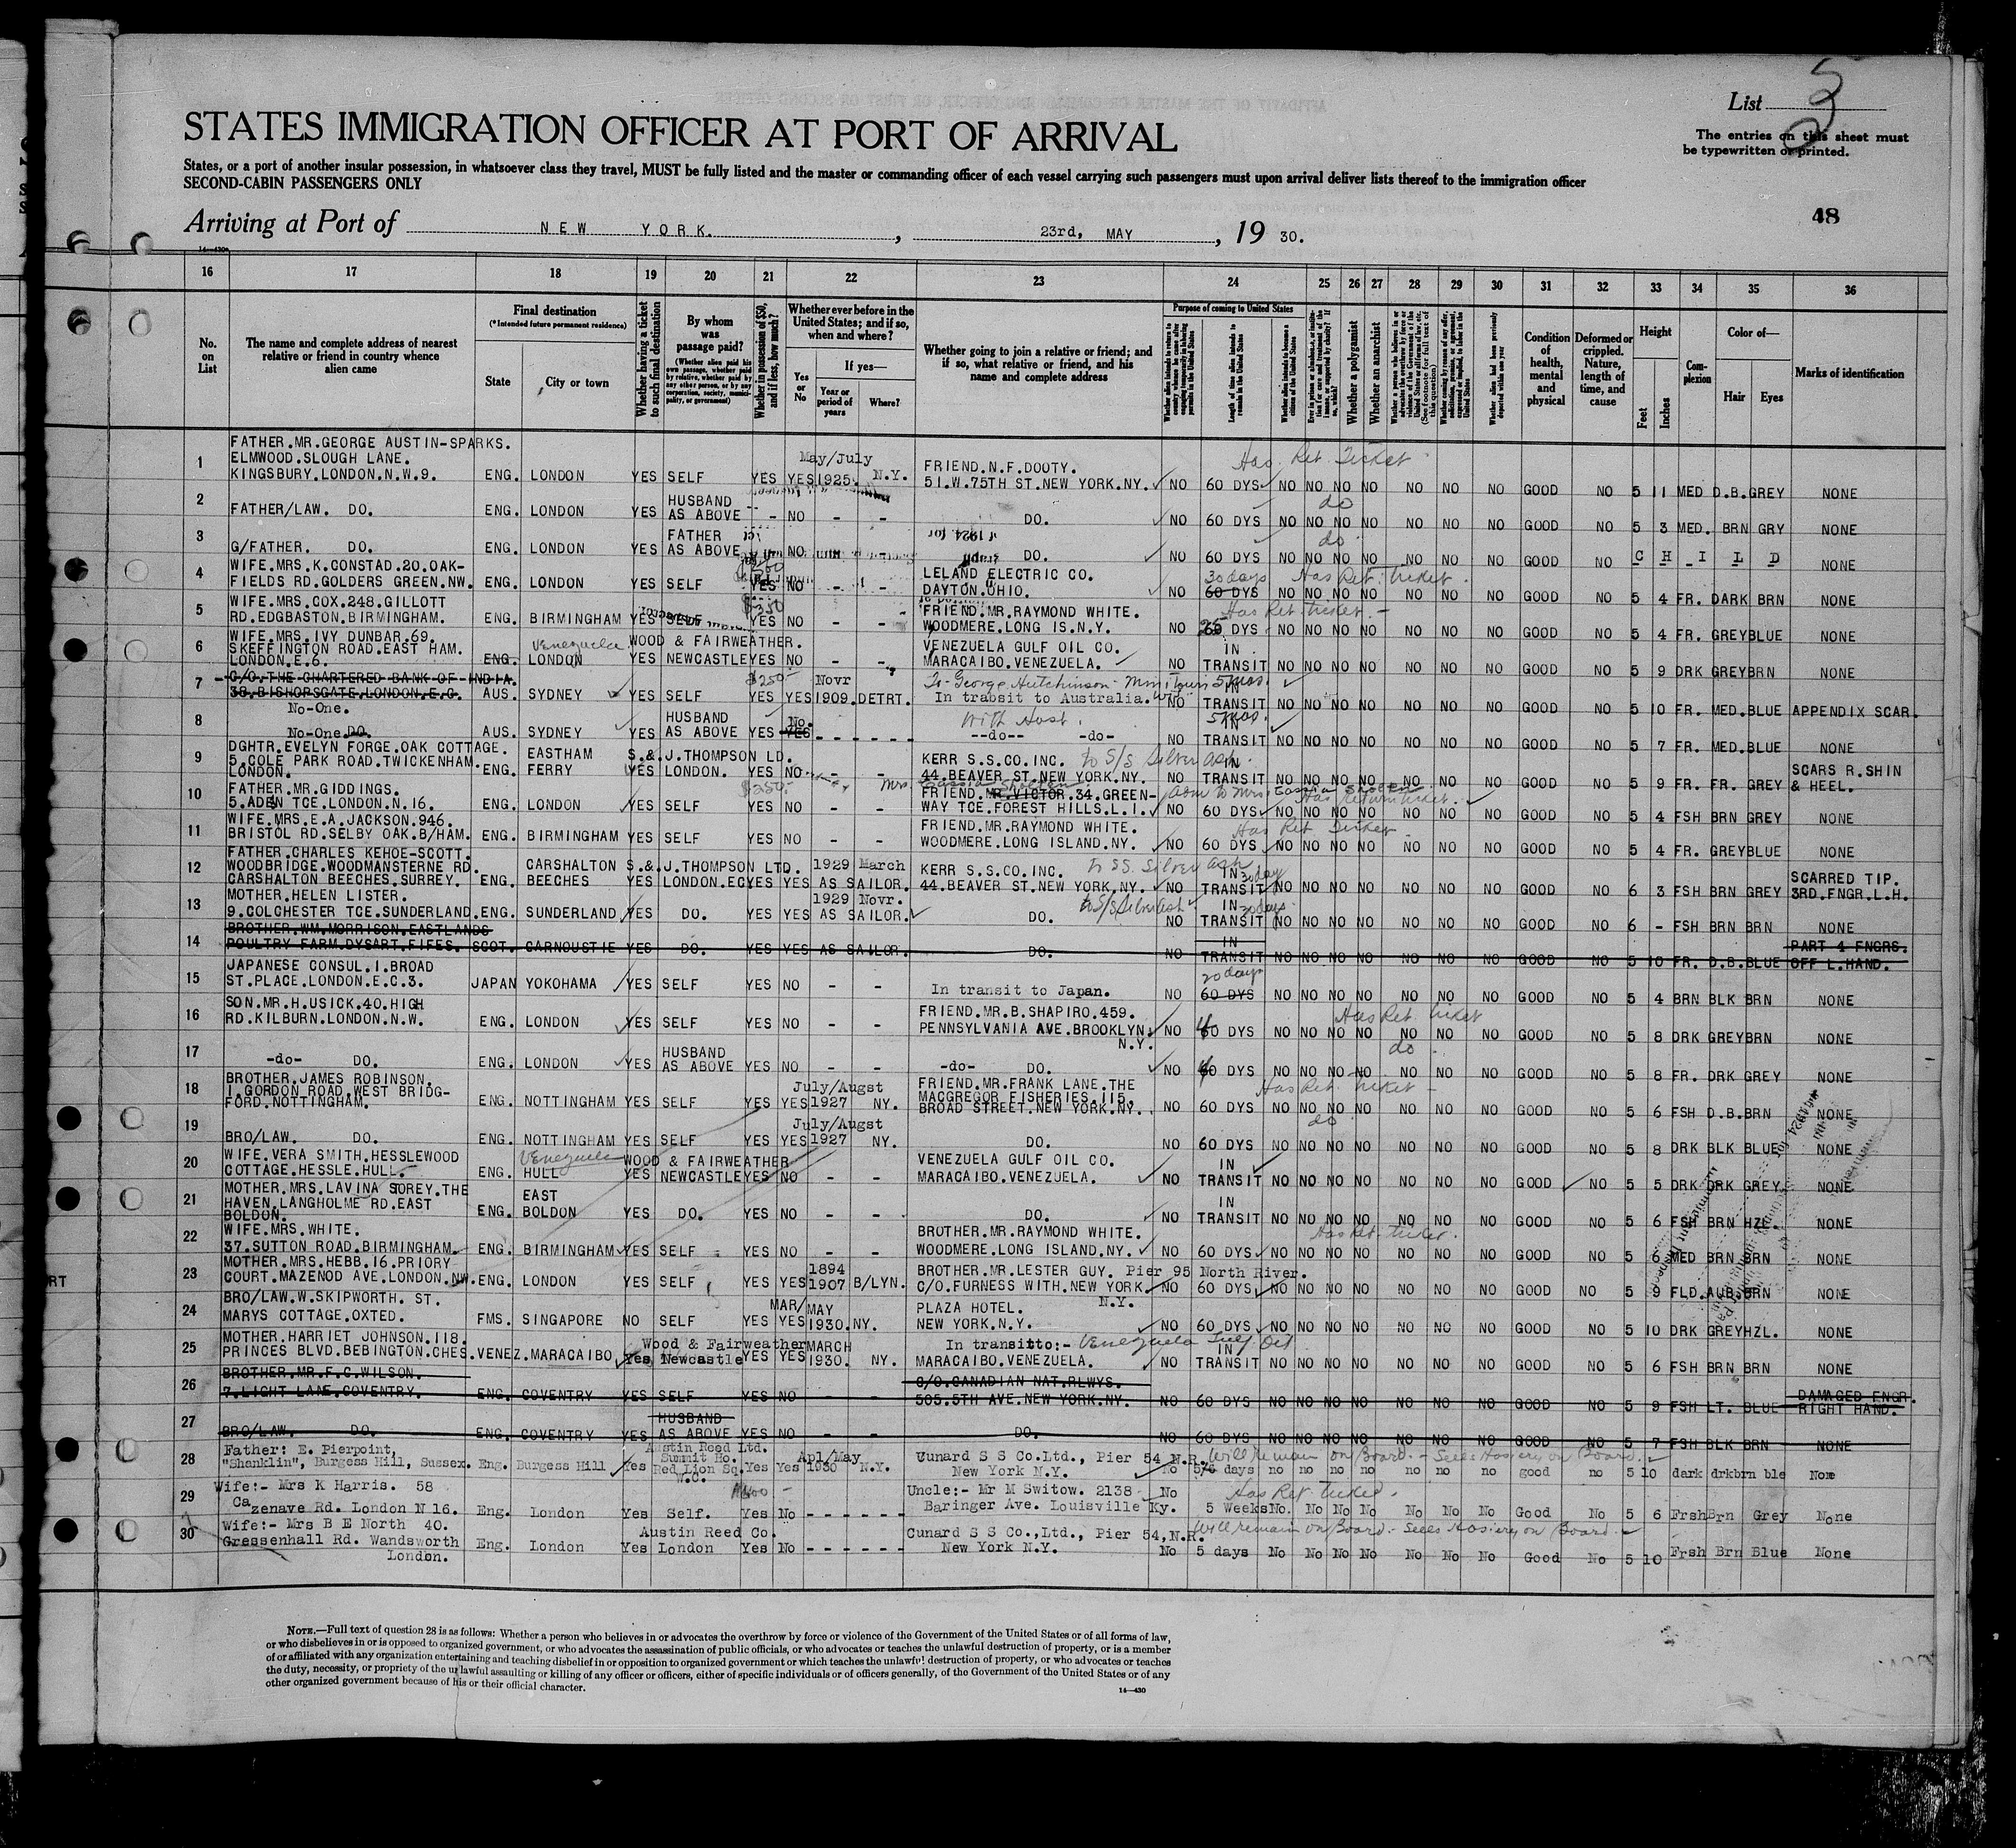 List 3
STATES IMMIGRATION OFFICER AT PORT OF ARRIVAL
The entries on this sheet must
be typewritten or printed.
States, or a port of another insular possession, in whatsoever class they travel, MUST be fully listed and the master or commanding officer of each vessel carrying such passengers must upon arrival deliver lists thereof to the immigration officer
SECOND-CABIN PASSENGERS ONLY
48
Arriving at Port of NEW YORK. , 23rd, MAY , 19 30.
14—430
16 17 18 19 20 21 22 23 24 25 26 27 28 29 30 31 32 33 34 35 36
No. on List
The name and complete address of nearest relative or friend in country whence alien came
Final destination
(*Intended future permanent residence)
State
City or town
Whether having a ticket to such final destination
By whom was passage paid?
(Whether alien paid his own passage, whether paid by relative, whether paid by any other person, or by any corporation, society, municipality, or government)
Whether in possession of $50, and if less, how much?
Whether ever before in the United States; and if so, when and where?
Yes or No
If yes—
Year or period of years
Where?
Whether going to join a relative or friend; and if so, what relative or friend, and his name and complete address
Purpose of coming to United States
Length of time alien intends to remain in the United States
Whether alien intends to become a citizen of the United States
Whether a polygamist
Whether an anarchist
Whether alien had been previously deported within one year
Condition of health, mental and physical
Deformed or crippled. Nature, length of time, and cause
Height
Feet
Inches
Complexion
Color of—
Hair
Eyes
Marks of identification
1 FATHER.MR.GEORGE AUSTIN-SPARKS. May/July Has Ret Ticket
ELMWOOD.SLOUGH LANE. FRIEND.N.F.DOOTY.
KINGSBURY.LONDON.N.W.9. ENG. LONDON YES SELF YES YES 1925. N.Y. 51.W.75TH ST.NEW YORK.NY. NO 60 DYS NO NO NO NO NO NO NO GOOD NO 5 11 MED D.B. GREY NONE
2 HUSBAND do
FATHER/LAW. DO. ENG. LONDON YES AS ABOVE - NO - - DO. NO 60 DYS NO NO NO NO NO NO NO GOOD NO 5 3 MED. BRN GRY NONE
3 FATHER do
G/FATHER. DO. ENG. LONDON YES AS ABOVE NO - DO. NO 60 DYS NO NO NO NO NO NO NO GOOD NO C H I L D NONE
4 WIFE.MRS.K.CONSTAD.20.OAK- LELAND ELECTRIC CO. 30 days Has Ret. ticket.
FIELDS RD.GOLDERS GREEN.NW. ENG. LONDON YES SELF YES NO - - DAYTON.OHIO. NO 60 DYS NO NO NO NO NO NO NO GOOD NO 5 4 FR. DARK BRN NONE
5 WIFE.MRS.COX.248.GILLOTT $350 FRIEND.MR.RAYMOND WHITE. Has Ret ticket. -
RD.EDGBASTON.BIRMINGHAM. ENG. BIRMINGHAM YES SELF YES NO - WOODMERE.LONG IS.N.Y. NO 60 DYS NO NO NO NO NO NO NO GOOD NO 5 4 FR. GREY BLUE NONE
6 WIFE.MRS.IVY DUNBAR.69. Venezuela WOOD & FAIRWEATHER. VENEZUELA GULF OIL CO. IN
SKEFFINGTON ROAD.EAST HAM.
LONDON.E.6. ENG. LONDON YES NEWCASTLE YES NO - - MARACAIBO.VENEZUELA. NO TRANSIT NO NO NO NO NO NO NO GOOD NO 5 9 DRK GREY BRN NONE
7 C/O.THE CHARTERED BANK OF INDIA. $250- Novr To George Hutchinson IN
38.BISHOPSGATE.LONDON.E.C. AUS. SYDNEY YES SELF YES YES 1909. DETRT. In transit to Australia. NO TRANSIT NO NO NO NO NO NO NO GOOD NO 5 10 FR. MED. BLUE APPENDIX SCAR.
No-One.
8 HUSBAND No. With Husb. IN
No-One. DO. AUS. SYDNEY YES AS ABOVE YES YES - - - - - - --do-- -do- NO TRANSIT NO NO NO NO NO NO NO GOOD NO 5 7 FR. MED. BLUE NONE
9 DGHTR.EVELYN FORGE.OAK COTTAGE. EASTHAM S.&.J.THOMPSON LD. KERR S.S.CO.INC. to S/S Silver Ash. IN
5.COLE PARK ROAD.TWICKENHAM. SCARS R.SHIN
LONDON. ENG. FERRY YES LONDON. YES NO - - 44.BEAVER ST.NEW YORK.NY. NO TRANSIT NO NO NO NO NO NO NO GOOD NO 5 9 FR. FR. GREY & HEEL.
10 FATHER.MR.GIDDINGS. $250- FRIEND.MR.VICTOR.34.GREEN- Has Return ticket.
5.ADEN TCE.LONDON.N.16. ENG. LONDON YES SELF YES NO - - WAY TCE.FOREST HILLS.L.I. NO 60 DYS NO NO NO NO NO NO NO GOOD NO 5 4 FSH BRN GREY NONE
11 WIFE.MRS.E.A.JACKSON.946. FRIEND.MR.RAYMOND WHITE. Has Ret Ticket.
BRISTOL RD.SELBY OAK.B/HAM. ENG. BIRMINGHAM YES SELF YES NO - - WOODMERE.LONG ISLAND.NY. NO 60 DYS NO NO NO NO NO NO NO GOOD NO 5 4 FR. GREY BLUE NONE
12 FATHER.CHARLES KEHOE-SCOTT.
WOODBRIDGE.WOODMANSTERNE RD. CARSHALTON S.&.J.THOMPSON LTD. 1929 March KERR S.S.CO.INC. to SS. Silver Ash IN 30 day SCARRED TIP.
CARSHALTON BEECHES.SURREY. ENG. BEECHES YES LONDON.EC YES YES AS SAILOR. 44.BEAVER ST.NEW YORK.NY. NO TRANSIT NO NO NO NO NO NO NO GOOD NO 6 3 FSH BRN GREY 3RD.FNGR.L.H.
13 MOTHER.HELEN LISTER. 1929 Novr. to S/S Silver Ash IN 30 days.
9.COLCHESTER TCE.SUNDERLAND. ENG. SUNDERLAND YES DO. YES YES AS SAILOR. DO. NO TRANSIT NO NO NO NO NO NO NO GOOD NO 6 - FSH BRN BRN NONE
14 BROTHER.WM.MORRISON.EASTLANDS IN PART 4 FNGRS.
POULTRY FARM.DYSART.FIFES. SCOT. CARNOUSTIE YES DO. YES YES AS SAILOR. DO. NO TRANSIT NO NO NO NO NO NO NO GOOD NO 5 10 FR. D.B. BLUE OFF L.HAND.
15 JAPANESE CONSUL.1.BROAD 20 days
ST.PLACE.LONDON.E.C.3. JAPAN YOKOHAMA YES SELF YES NO - - In transit to Japan. NO 60 DYS NO NO NO NO NO NO NO GOOD NO 5 4 BRN BLK BRN NONE
16 SON.MR.H.USICK.40.HIGH FRIEND.MR.B.SHAPIRO.459. Has Ret. ticket
RD.KILBURN.LONDON.N.W. ENG. LONDON YES SELF YES NO - - PENNSYLVANIA AVE.BROOKLYN. NO 60 DYS NO NO NO NO NO NO NO GOOD NO 5 8 DRK GREY BRN NONE
N.Y.
17 HUSBAND do
-do- DO. ENG. LONDON YES AS ABOVE YES NO - - -do- DO. NO 60 DYS NO NO NO NO NO NO NO GOOD NO 5 8 FR. DRK GREY NONE
18 BROTHER.JAMES ROBINSON. July/Augst FRIEND.MR.FRANK LANE.THE Has Ret. ticket -
1.GORDON ROAD.WEST BRIDG- MACGREGOR FISHERIES.115.
FORD.NOTTINGHAM. ENG. NOTTINGHAM YES SELF YES YES 1927 NY. BROAD STREET.NEW YORK.NY. NO 60 DYS NO NO NO NO NO NO NO GOOD NO 5 6 FSH D.B. BRN NONE
19 July/Augst do
BRO/LAW. DO. ENG. NOTTINGHAM YES SELF YES YES 1927 NY. DO. NO 60 DYS NO NO NO NO NO NO NO GOOD NO 5 8 DRK BLK BLUE NONE
20 WIFE.VERA SMITH.HESSLEWOOD Venezuela WOOD & FAIRWEATHER VENEZUELA GULF OIL CO. IN
COTTAGE.HESSLE.HULL. ENG. HULL YES NEWCASTLE YES NO - - MARACAIBO.VENEZUELA. NO TRANSIT NO NO NO NO NO NO NO GOOD NO 5 5 DRK DRK GREY NONE
21 MOTHER.MRS.LAVINA STOREY.THE EAST IN
HAVEN.LANGHOLME RD.EAST
BOLDON. ENG. BOLDON YES DO. YES NO - - DO. NO TRANSIT NO NO NO NO NO NO NO GOOD NO 5 6 FSH BRN HZL. NONE
22 WIFE.MRS.WHITE. BROTHER.MR.RAYMOND WHITE. Has Ret. ticket.
37.SUTTON ROAD.BIRMINGHAM. ENG. BIRMINGHAM YES SELF YES NO - - WOODMERE.LONG ISLAND.NY. NO 60 DYS NO NO NO NO NO NO NO GOOD NO 5 6 MED BRN BRN NONE
23 MOTHER.MRS.HEBB.16.PRIORY 1894 BROTHER.MR.LESTER GUY. Pier 95 North River.
COURT.MAZENOD AVE.LONDON.NW. ENG. LONDON YES SELF YES YES 1907 B/LYN. C/O.FURNESS WITH.NEW YORK NO 60 DYS NO NO NO NO NO NO NO GOOD NO 5 9 FLD. AUB. BRN NONE
24 BRO/LAW.W.SKIPWORTH. ST. MAR/MAY PLAZA HOTEL. N.Y.
MARYS COTTAGE.OXTED. FMS. SINGAPORE NO SELF YES YES 1930. NY. NEW YORK.N.Y. NO 60 DYS NO NO NO NO NO NO NO GOOD NO 5 10 DRK GREY HZL. NONE
25 MOTHER.HARRIET JOHNSON.118. Wood & Fairweather MARCH In transitto:- Venezuela Gulf Oil IN
PRINCES BLVD.BEBINGTON.CHES. VENEZ. MARACAIBO Yes Newcastle YES YES 1930. NY. MARACAIBO.VENEZUELA. NO TRANSIT NO NO NO NO NO NO NO GOOD NO 5 6 FSH BRN BRN NONE
26 BROTHER.MR.F.C.WILSON. C/O.CANADIAN NAT.RLWYS. DAMAGED FNGR.
7.LIGHT LANE.COVENTRY. ENG. COVENTRY YES SELF YES NO - - 505.5TH AVE.NEW YORK.NY. NO 60 DYS NO NO NO NO NO NO NO GOOD NO 5 9 FSH LT. BLUE RIGHT HAND.
27 HUSBAND
BRO/LAW. DO. ENG. COVENTRY YES AS ABOVE YES NO - - DO. NO 60 DYS NO NO NO NO NO NO NO GOOD NO 5 7 FSH BLK BRN NONE
28 Father: E. Pierpoint, Austin Reed Ltd. Apl/May Cunard S S Co.Ltd., Pier 54 N.R. Will remain on Board. - Sells Hosiery on Board.
"Shanklin", Burgess Hill, Sussex. Eng. Burgess Hill Yes Summit Ho. Red Lion Sq. W.C. Yes Yes 1930 N.Y. New York N.Y. No 5/6 days no no no no no no no good no 5 10 dark drkbrn ble None
29 Wife:- Mrs K Harris. 58 Uncle:- Mr M Switow. 2138 No Has Ret. ticket.
Cazenave Rd. London N 16. Eng. London Yes Self. Yes No - - - - - - Baringer Ave. Louisville Ky. 5 Weeks No. No No No No No No Good No 5 6 Frsh Brn Grey None
30 Wife:- Mrs B E North 40. Austin Reed Co. Cunard S S Co.,Ltd., Pier 54,N.R. Will remain on Board. Sells Hosiery on Board.
Gressenhall Rd. Wandsworth Eng. London Yes London Yes No - - - - - - New York N.Y. No 5 days No No No No No No No Good No 5 10 Frsh Brn Blue None
London.
NOTE.—Full text of question 28 is as follows: Whether a person who believes in or advocates the overthrow by force or violence of the Government of the United States or of all forms of law,
or who disbelieves in or is opposed to organized government, or who advocates the assassination of public officials, or who advocates or teaches the unlawful destruction of property, or is a member
of or affiliated with any organization entertaining and teaching disbelief in or opposition to organized government or which teaches the unlawful destruction of property, or who advocates or teaches
the duty, necessity, or propriety of the unlawful assaulting or killing of any officer or officers, either of specific individuals or of officers generally, of the Government of the United States or of any
other organized government because of his or their official character.
14—430